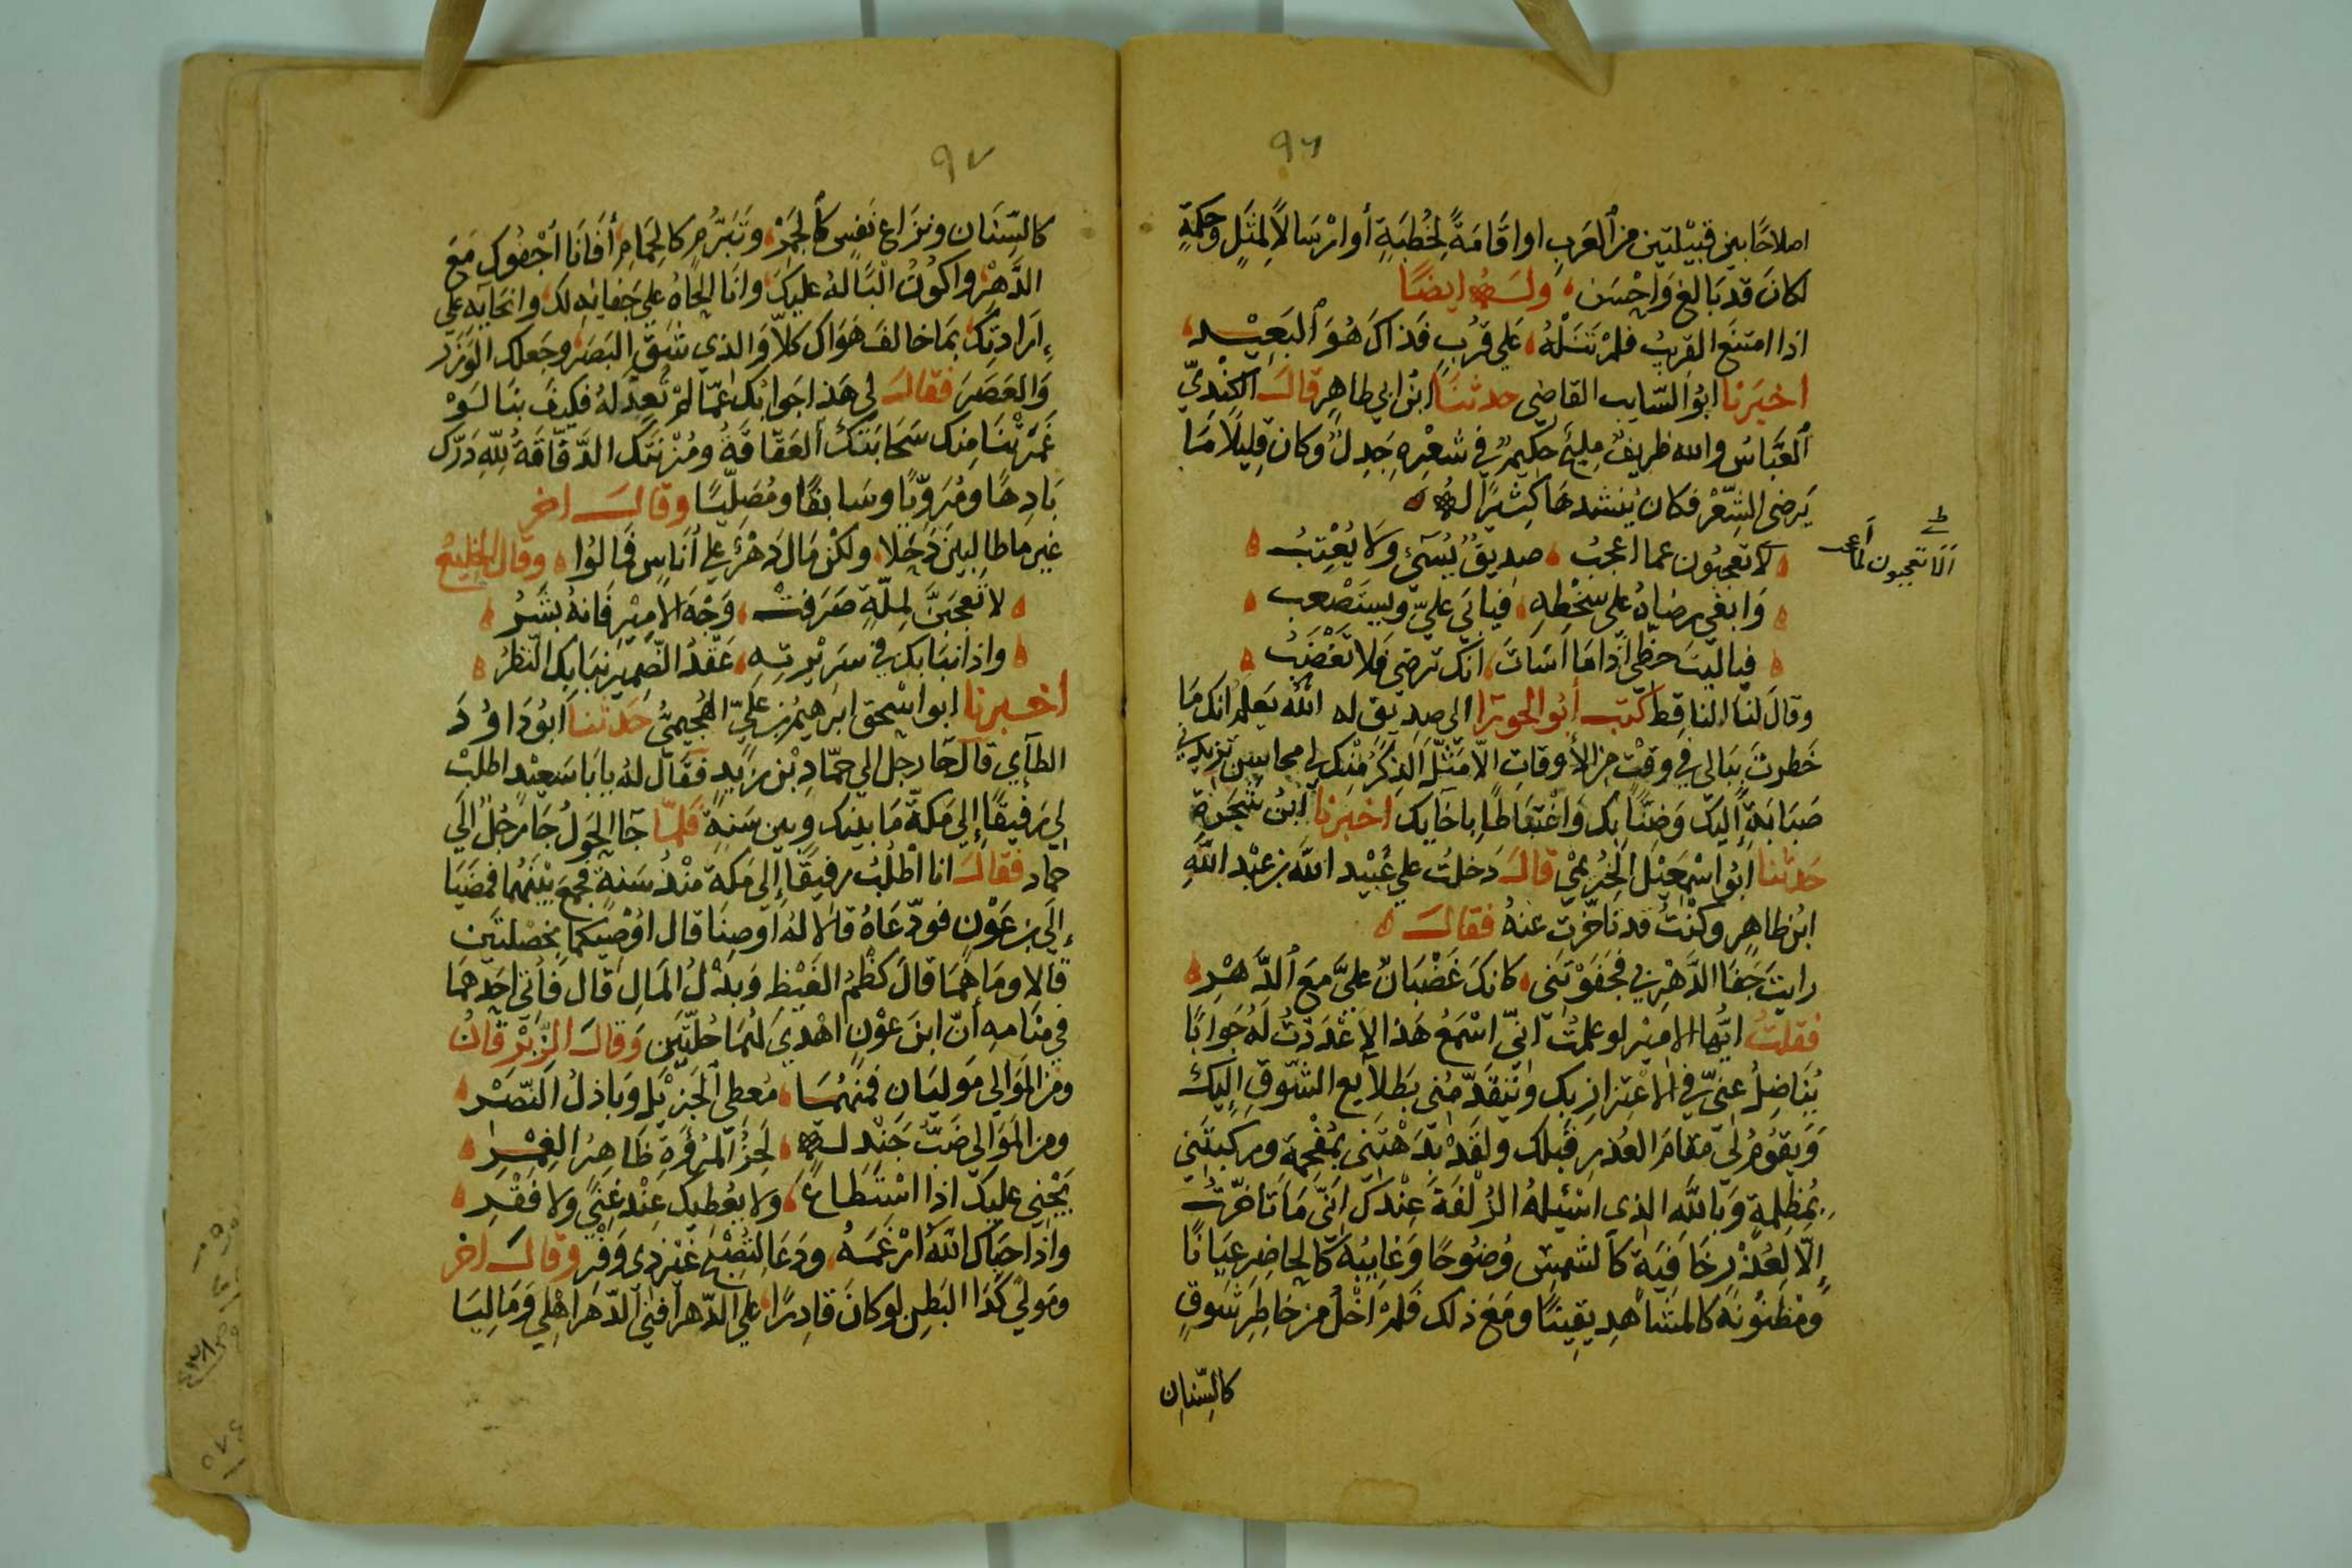 ٩٦
اصلاحًا بين قبيلتين من العرب او اقامةً لخُطبةٍ أو ارْسَالاً لمثلٍ وحكمةٍ
لكانَ قد بَالغ وَاحْسَن، ولـه ايضًا
اذا امتنع القريبُ فلمْ تَنَلْهُ، عَلي قُربٍ فذاكَ هُوَ البَعِيْد،
اخبَرنا ابوُ السّايب القاضى حدثنَا ابنُ ابي طاهِر قالَ الكِنْديّ
العَبّاسُ والله ظريفٌ مليحٌ حكيمٌ في شعْرِهِ جَدِلٌ وكان قليلاً مَا
يَرضى الشِعْرَ فكان يُنشد هَا كثيرًا لـه
لا تعجبُون عما اعجبُ، صديقٌ يُسَىٔ وَلا يُعْتِبُ
وَابغى رضاهُ على سخْطِهِ، فيابَى عليّ ويستَصْعب
فياليتَ حظّى اذا مَا اسَات، انك ترضى فلا تَغْضَبُ
الَا تعجبون لما أعـ
وقالَ لنَا الناقط كتب أبُو الحورا الى صدِيق له اللّه يَعلم انك مَا
خَطرتَ بِبَالى في وقتٍ من الأوقات الّا مَثّلَ الذِكرُ مِنْك لي محاسِن تزيدني
صَبَابَةً اليك وَضِنًّا بك وَاغْتبَاطًا باخآيك اخبرنا ابن شجَرة
حَدثنا ابُو اسْمعيْل الخُزعيّ قالَ دَخلتُ علي عُبيْد اللّه بن عبْد اللّهِ
ابنِ طاهِرٍ وكنْتُ قد تاخّرت عنهُ فقالَ
رايتَ جَفَا الدَّهْرِ بي فجَفَوْتَنى، كانكَ غَضْبَانٌ عليَّ مَعَ الدَّهْرِ
فقلتُ ايُّها الامير لو علمتُ انّي اسْمَعُ هَذا لاَعْدَدتُ لَهُ جَوابًا
يُنَاضِلُ عنيّ في الاعْتِزازِ بك ويَتقدّمُنى بطلآيع الشّوقِ اليكَ
وَيقوُمُ لي مقامَ العُذرِ قبلك ولقَدْ بَدَهْتَنِي بمُفْحِمةٍ ورَكبتَني
بمُظلمةٍ وَبالله الذى اسْئلهُ الزُلفَةَ عِنْدكَ انّي مَا تاخّرتُ
إلّا لِعُذرٍ خَافِيهِ كالشمسِ وُضُوحًا وَغايبُهُ كالحَاضِرِ عيَانًا
ومَظْنُونهُ كالمشَاهِدِ يقِينًا ومَعَ ذلك فلمْ اخْلُ من خاطِرِ شَوقٍ
كالسِّنان
٩٧
كالسِّنَان ونزاع نَفسٍ كالجَمْرِ، وتَبَرُّمٍ كالحِمَامِ أفانَا أجْفُوك مَعَ
الدَّهْرِ، واكوُنُ الْبًا لهُ عليكَ، وانَا الحَاهُ علي جَفايه لك، وانحايه علي
إرَادتِك بمَا خالفَ هَوَاك كلاّ وَالذي شَقَّ البَصَرَ وجَعلك الوَزَرَ
وَالعَصَرَ فقالَ لي هَذا جَوابُك عمّا لمْ تُعِدَّ لهُ فكيفَ بنَا لَوْ
غَمَرَتْنَا مِنك سَحَابتُك العَقّاقةُ ومُزْنَتُك الدَّفّاقَةُ لِلّهِ دَرُّك
بَادِهًا ومُرَوِّيًا وسَابقًا ومُصَلّيًا وقالـــ اخر
غيرِ ما طالبينَ ذَحْلا، ولكنْ مَالَ دَهْرٌ علي أنَاسٍ فمالُوا ، وقال الخليعُ
لا تَعجَبَنَّ لمِلّةٍ صَرَفتْ، وَجْهَ الامِيْرِ فانهُ بَشَرُ
واذا نَبَا بك في سَرِيْرتِهِ، عَقْدُ الضّمِيرِ نَبَا بِك النّظَرُ
اخـــبرنا ابو اسْحق ابرَهيمُ بن عَليّ الهُجَيميُّ حَدّثنا ابُو دَاوُدَ
الطآي قالَ جَا رجل الي حمّادِ بْن زيدٍ فقال لهُ يابَا سَعيْد اطلبْ
لي رَفيقًا إلي مكةَ مَا بينك وبين سَنةٍ فلمّا جَا الحَولُ جَا رَجُلٌ الي
حماد فقالَ انا اطلُبُ رفيقًا إلي مكةَ منْذُ سَنةٍ فجمَع بيْنَهُما فمَضَيَا
إلي بن عَوْنٍ فودّعَاهُ قالا لهُ اوصنَا قال اوُصِيكما بخصْلتَين
قالا ومَا هُمَا قالَ كظْمُ الغَيْظِ وَبذْلُ المَالِ قال فَأُتي احَدهمَا
في منَامهِ أنّ ابنَ عوْنٍ اهْديَ لهُمَا حُلّتَين وَقالَ الزّبْرقانُ
ومن الموَالي مَوليَان فمنهُمَا، مُعطى الجَزيْلِ وَباذلُ النّصْرِ
ومن المَوَالي ضَبُّ جَنْدلــةٍ، لَحِزُ المُروَّةِ ظَاهرُ الغِمْرِ
يَجْنِى عليكَ اذا اسْتَطاعَ، ولا يعُطيكَ عِنْد غنًي ولا فقْرِ
واذا حَبَاكَ اللّهُ ارْغَمَهُ، ودَعَا لتُصْبحَ غيرَ ذى وَفْرِ وَقالَ اخر
ومَوليً كدَا البَطنِ لو كانَ قادِرًا، علي الدّهر افنيَ الدّهرَ اهْلي وَمَاليَا